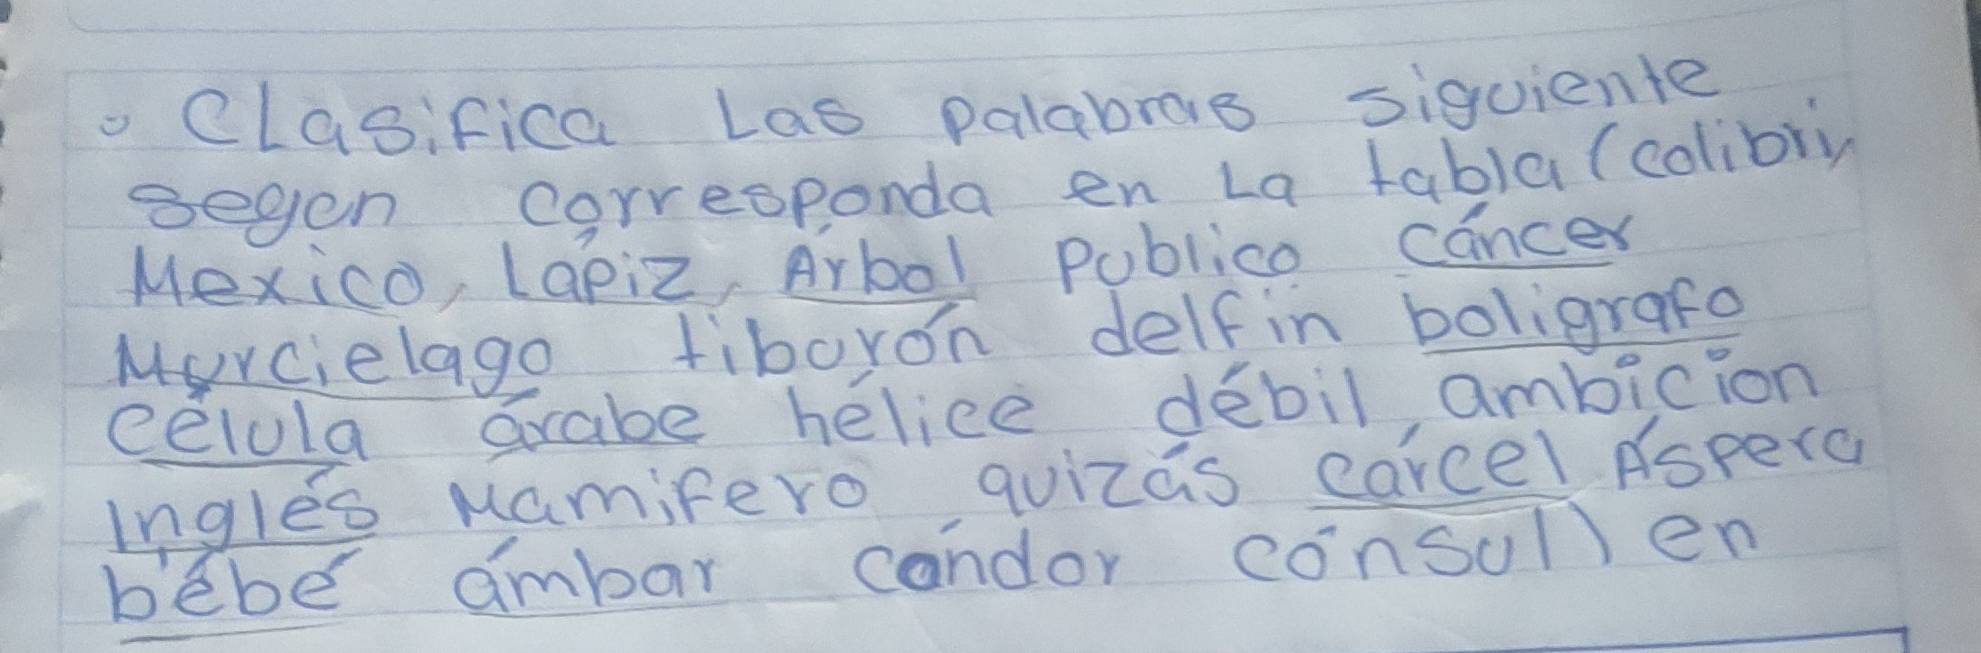 Clasifica Las palabras siguiente
segen corresponda en La tabla (colibrí,
Mexico, Lápiz, Árbol Publico cáncer
Murcielago tiburón delfin boligrafo
célula árabe hélice débil, ambicion
Inglés Mamifero quizás cárcel Áspera
bébé ámbar cóndor cónsul) en